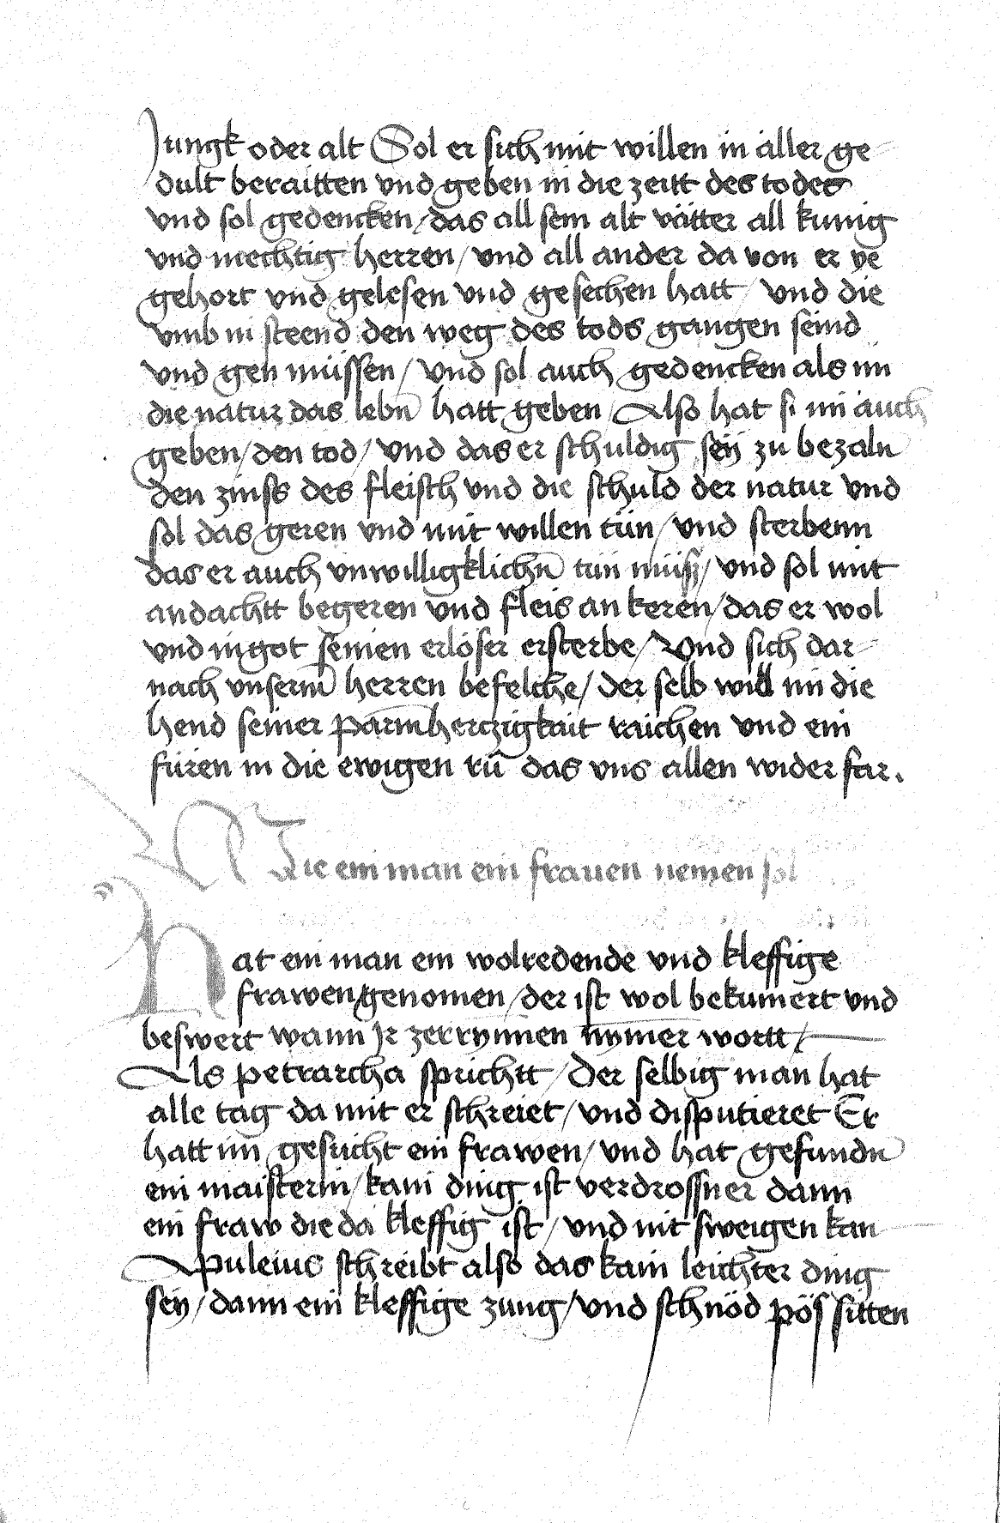 Jungk oder alt Sol er sich mit willen in aller ge⸗
dult beraitten vnd geben in die zeitt des todes
vnd sol gedencken / das all sein alt vätter all kunig
vnd mechtig herren / vnd all ander da von er ye
gehort vnd gelesen vnd gesechen hatt / vnd die
vmb in steend den weg des tods gangen seind
vnd gen müssen / vnd sol auch gedencken als im
die natur das lebn̄ hatt geben / Also hat si im auch
geben / den tod / vnd das er schuldig seÿ zu bezaln
den zinss des fleisch vnd die schuld der natur vnd
sol das geren vnd mit willen tün / vnd sterbenn
das er auch vnwilligklichn̄ tün müsz / vnd sol mit
andachtt begeren vnd fleis an keren / das er wol
vnd in got seinen erlöser ersterbe / Vnd sich dar⸗
nach vnserm̄ herren befelche / der selb will im die
hend seiner parmherczigkait raichen vnd ein
füren in die ewigen rū das vns allen widerfar.
Wie ein man ein frauen nemen sol
Hat ein man ein wolredende vnd kleffige
frawen genomen / der ist wol bekumert vnd
beswert wann Jr zerrynnen nymer wortt /
Als petrarcha sprichtt / Der selbig man hat
alle tag da mit er schreiet / vnd disputieret Er
hatt im gesücht ein frawen / vnd hat gefundn̄
ein maisterin / kain ding ist verdrossner dann
ein fraw die da kleffig ist / vnd nit sweigen kan
Apuleius schreibt also das kain leichter ding
seÿ / dann ein kleffige zung / vnd schnöd pös sitten